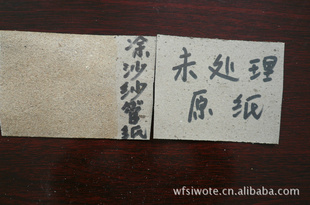 涂沙纱管纸
未处理
原纸
wfsiwote.cn.alibaba.com